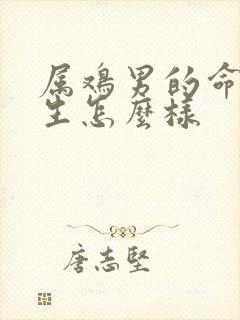 属鸡男的命
生怎麼樣
唐志堅